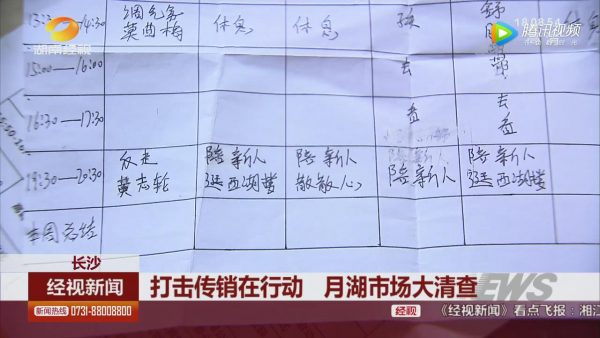 13:30—14:30
休息
休息
180854
腾讯视频
湖南经视
15:00—16:00
去
16:30—17:30
看
去
看
19:30—20:30
陪新人
逛西湖楼
陪新人
散散心
陪新人
陪新人
逛西湖楼
本周总结
长沙
经视新闻
打击传销在行动 月湖市场大清查
EWS
新闻热线 0731-88008800
经视
《经视新闻》看点飞报：湘江